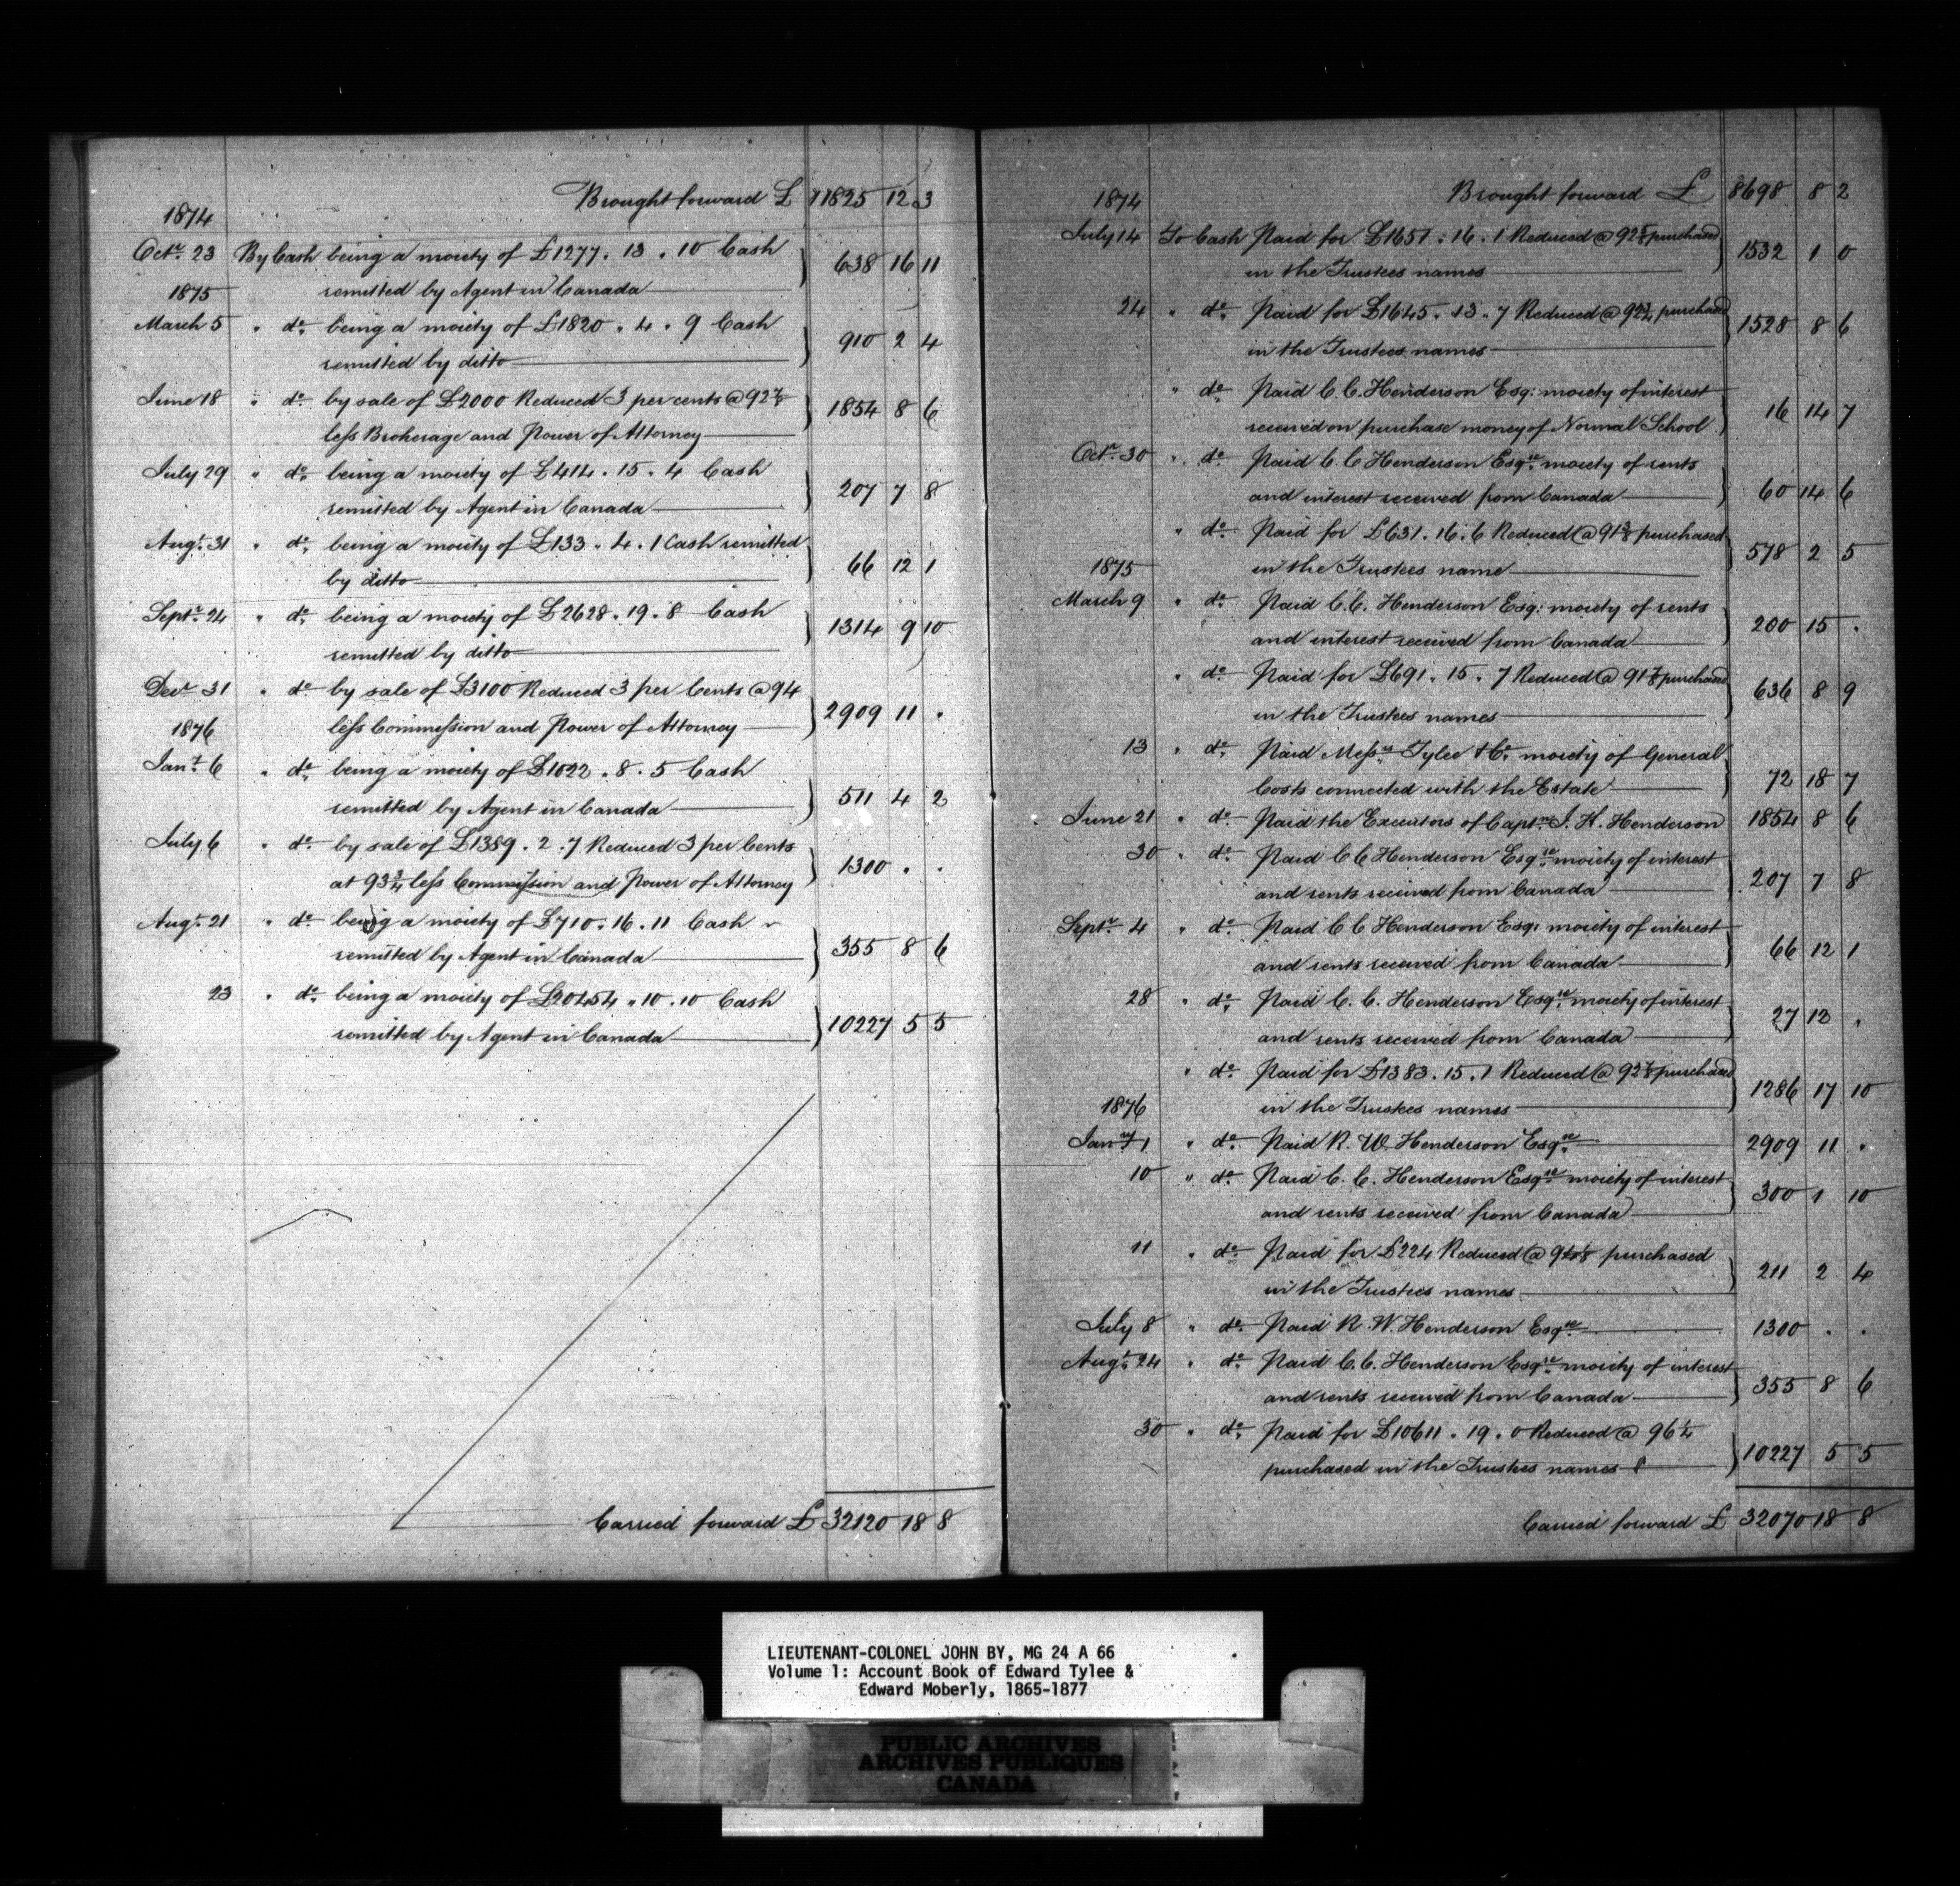 Brought forward £ 11825 12 3
1874
Octr. 23 By Cash being a moiety of £1277 . 13 . 10 Cash
remitted by Agent in Canada 638 16 11
1875
March 5 " do. being a moiety of £1820 . 4 . 9 Cash
remitted by ditto 910 2 4
June 18 " do. by sale of £2000 Reduced 3 per cents @ 92 7/8
less Brokerage and Power of Attorney 1854 8 6
July 29 " do. being a moiety of £414 . 15 . 4 Cash
remitted by Agent in Canada 207 7 8
Augt. 31 " do. being a moiety of £133 . 4 . 1 Cash remitted
by ditto 66 12 1
Septr. 24 " do. being a moiety of £2628 . 19 . 8 Cash
remitted by ditto 1314 9 10
Decr 31 " do. by sale of £3100 Reduced 3 per Cents @ 94
less Commission and Power of Attorney 2909 11 "
1876
Jany. 6 " do. being a moiety of £1022 . 8 . 5 Cash
remitted by Agent in Canada 511 4 2
July 6 " do. by sale of £1389 . 2 . 7 Reduced 3 per Cents
at 93 3/4 less Commission and Power of Attorney 1300 " "
Augt. 21 " do. being a moiety of £710 . 16 . 11 Cash
remitted by Agent in Canada 355 8 6
23 " do. being a moiety of £20454 . 10 . 10 Cash
remitted by Agent in Canada 10227 5 5
Carried forward £ 32120 18 8
1874 Brought forward £ 8698 8 2
July 14 To Cash Paid for £1651 . 16 . 1 Reduced @ 92 5/8 purchased
in the Trustees names 1532 1 0
24 " do. Paid for £1645 . 13 . 7 Reduced @ 92 3/4 purchased
in the Trustees names 1528 8 6
" do. Paid C. C. Henderson Esq: moiety of interest
received on purchase money of Normal School 16 14 7
Octr. 30 " do. Paid C. C Henderson Esqre. moiety of rents
and interest received from Canada 60 14 6
" do. Paid for £631 . 16 . 6 Reduced @ 91 3/8 purchased
in the Trustees name 578 2 5
1875
March 9 " do. Paid C. C. Henderson Esq: moiety of rents
and interest received from Canada 200 15 "
" do. Paid for £691 . 15 . 7 Reduced @ 91 7/8 purchased
in the Trustees names 636 8 9
13 " do. Paid Messrs. Tylee & Co. moiety of General
Costs connected with the Estate 72 18 7
June 21 " do. Paid the Executors of Captn. J. H. Henderson 1854 8 6
30 " do. Paid C C Henderson Esqre. moiety of interest
and rents received from Canada 207 7 8
Septr. 4 " do. Paid C C Henderson Esq: moiety of interest
and rents received from Canada 66 12 1
28 " do. Paid C. C. Henderson Esqre. moiety of interest
and rents received from Canada 27 12 "
" do. Paid for £1383 . 15 . 1 Reduced @ 92 7/8 purchased
in the Trustees names 1286 17 10
1876
Jany 1 " do. Paid R. W. Henderson Esqre. 2909 11 "
10 " do. Paid C. C. Henderson Esqre. moiety of interest
and rents received from Canada 300 1 10
11 " do. Paid for £224 Reduced @ 94 1/8 purchased
in the Trustees names 211 2 4
July 8 " do. Paid R. W. Henderson Esqre. 1300 " "
Augt. 24 " do. Paid C. C. Henderson Esqre. moiety of interest
and rents received from Canada 355 8 6
30 " do. Paid for £10611 . 19 . 0 Reduced @ 96 1/4
purchased in the Trustees names 10227 5 5
Carried forward £ 32070 18 8
LIEUTENANT-COLONEL JOHN BY, MG 24 A 66
Volume 1: Account Book of Edward Tylee &
Edward Moberly, 1865-1877
PUBLIC ARCHIVES
ARCHIVES PUBLIQUES
CANADA